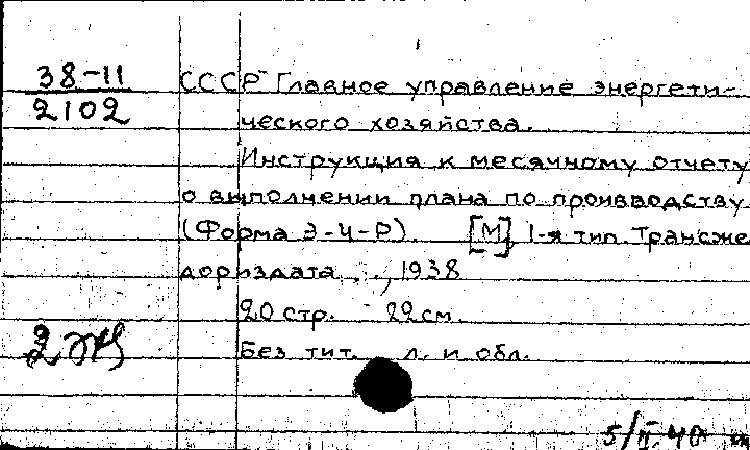 38-11
2102
СССР Главное управление энергети-
ческого хозяйства.
Инструкция к месячному отчету
о выполнении плана по производству
(Форма Э-4-Р). [М], 1-я тип. Трансже
дориздата, 1938
20 стр. 22 см.
Без тит. л. и обл.
5/II 40